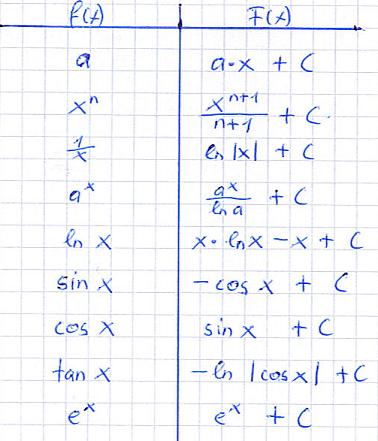 f(x) F(x)
a a·x + C
xⁿ xⁿ⁺¹/n+1 + C
1/x ln |x| + C
aˣ aˣ/ln a + C
ln x x·ln x - x + C
sin x -cos x + C
cos x sin x + C
tan x -ln |cos x| + C
eˣ eˣ + C